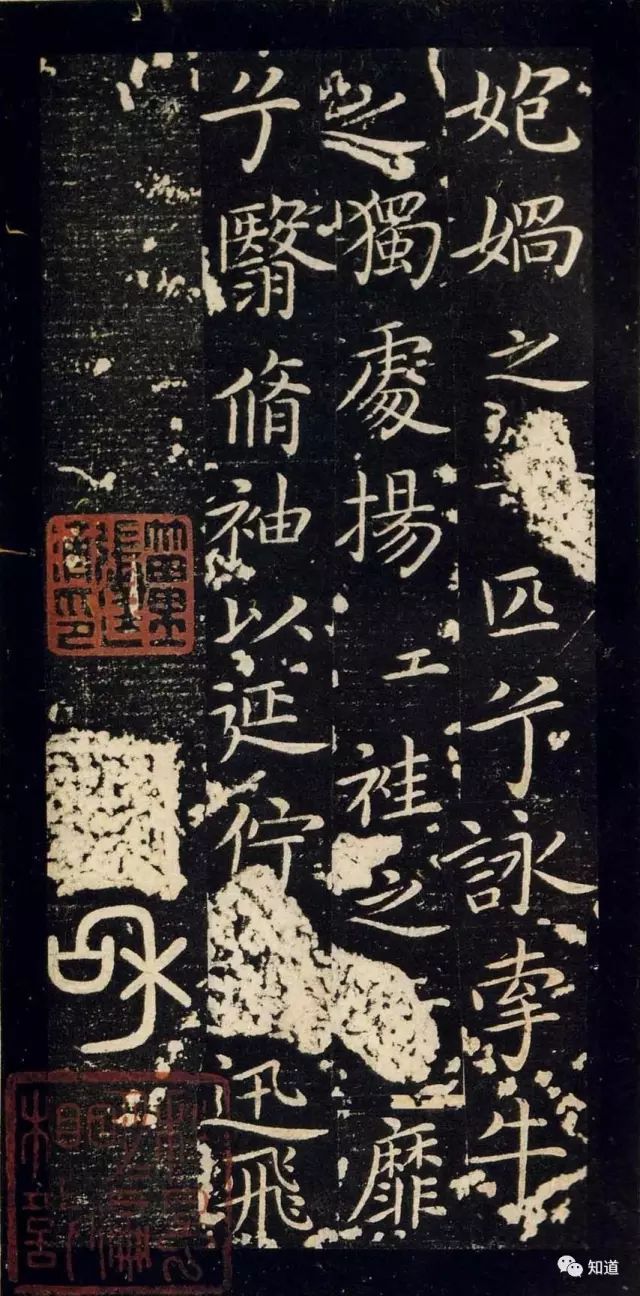 匏媧之匹兮詠牽牛
之獨處揚工袿之靡
兮翳脩袖以延佇迅飛
知道